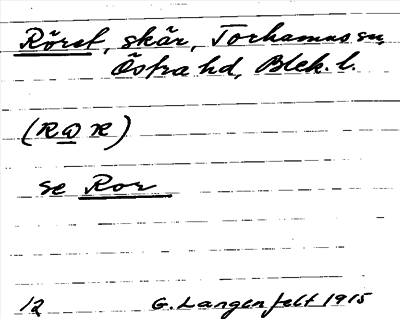 Röret, skär, Torhamns sn,
Östra hd, Blek. l.
(RωR)
se Ror
12 G. Langenfelt 1915